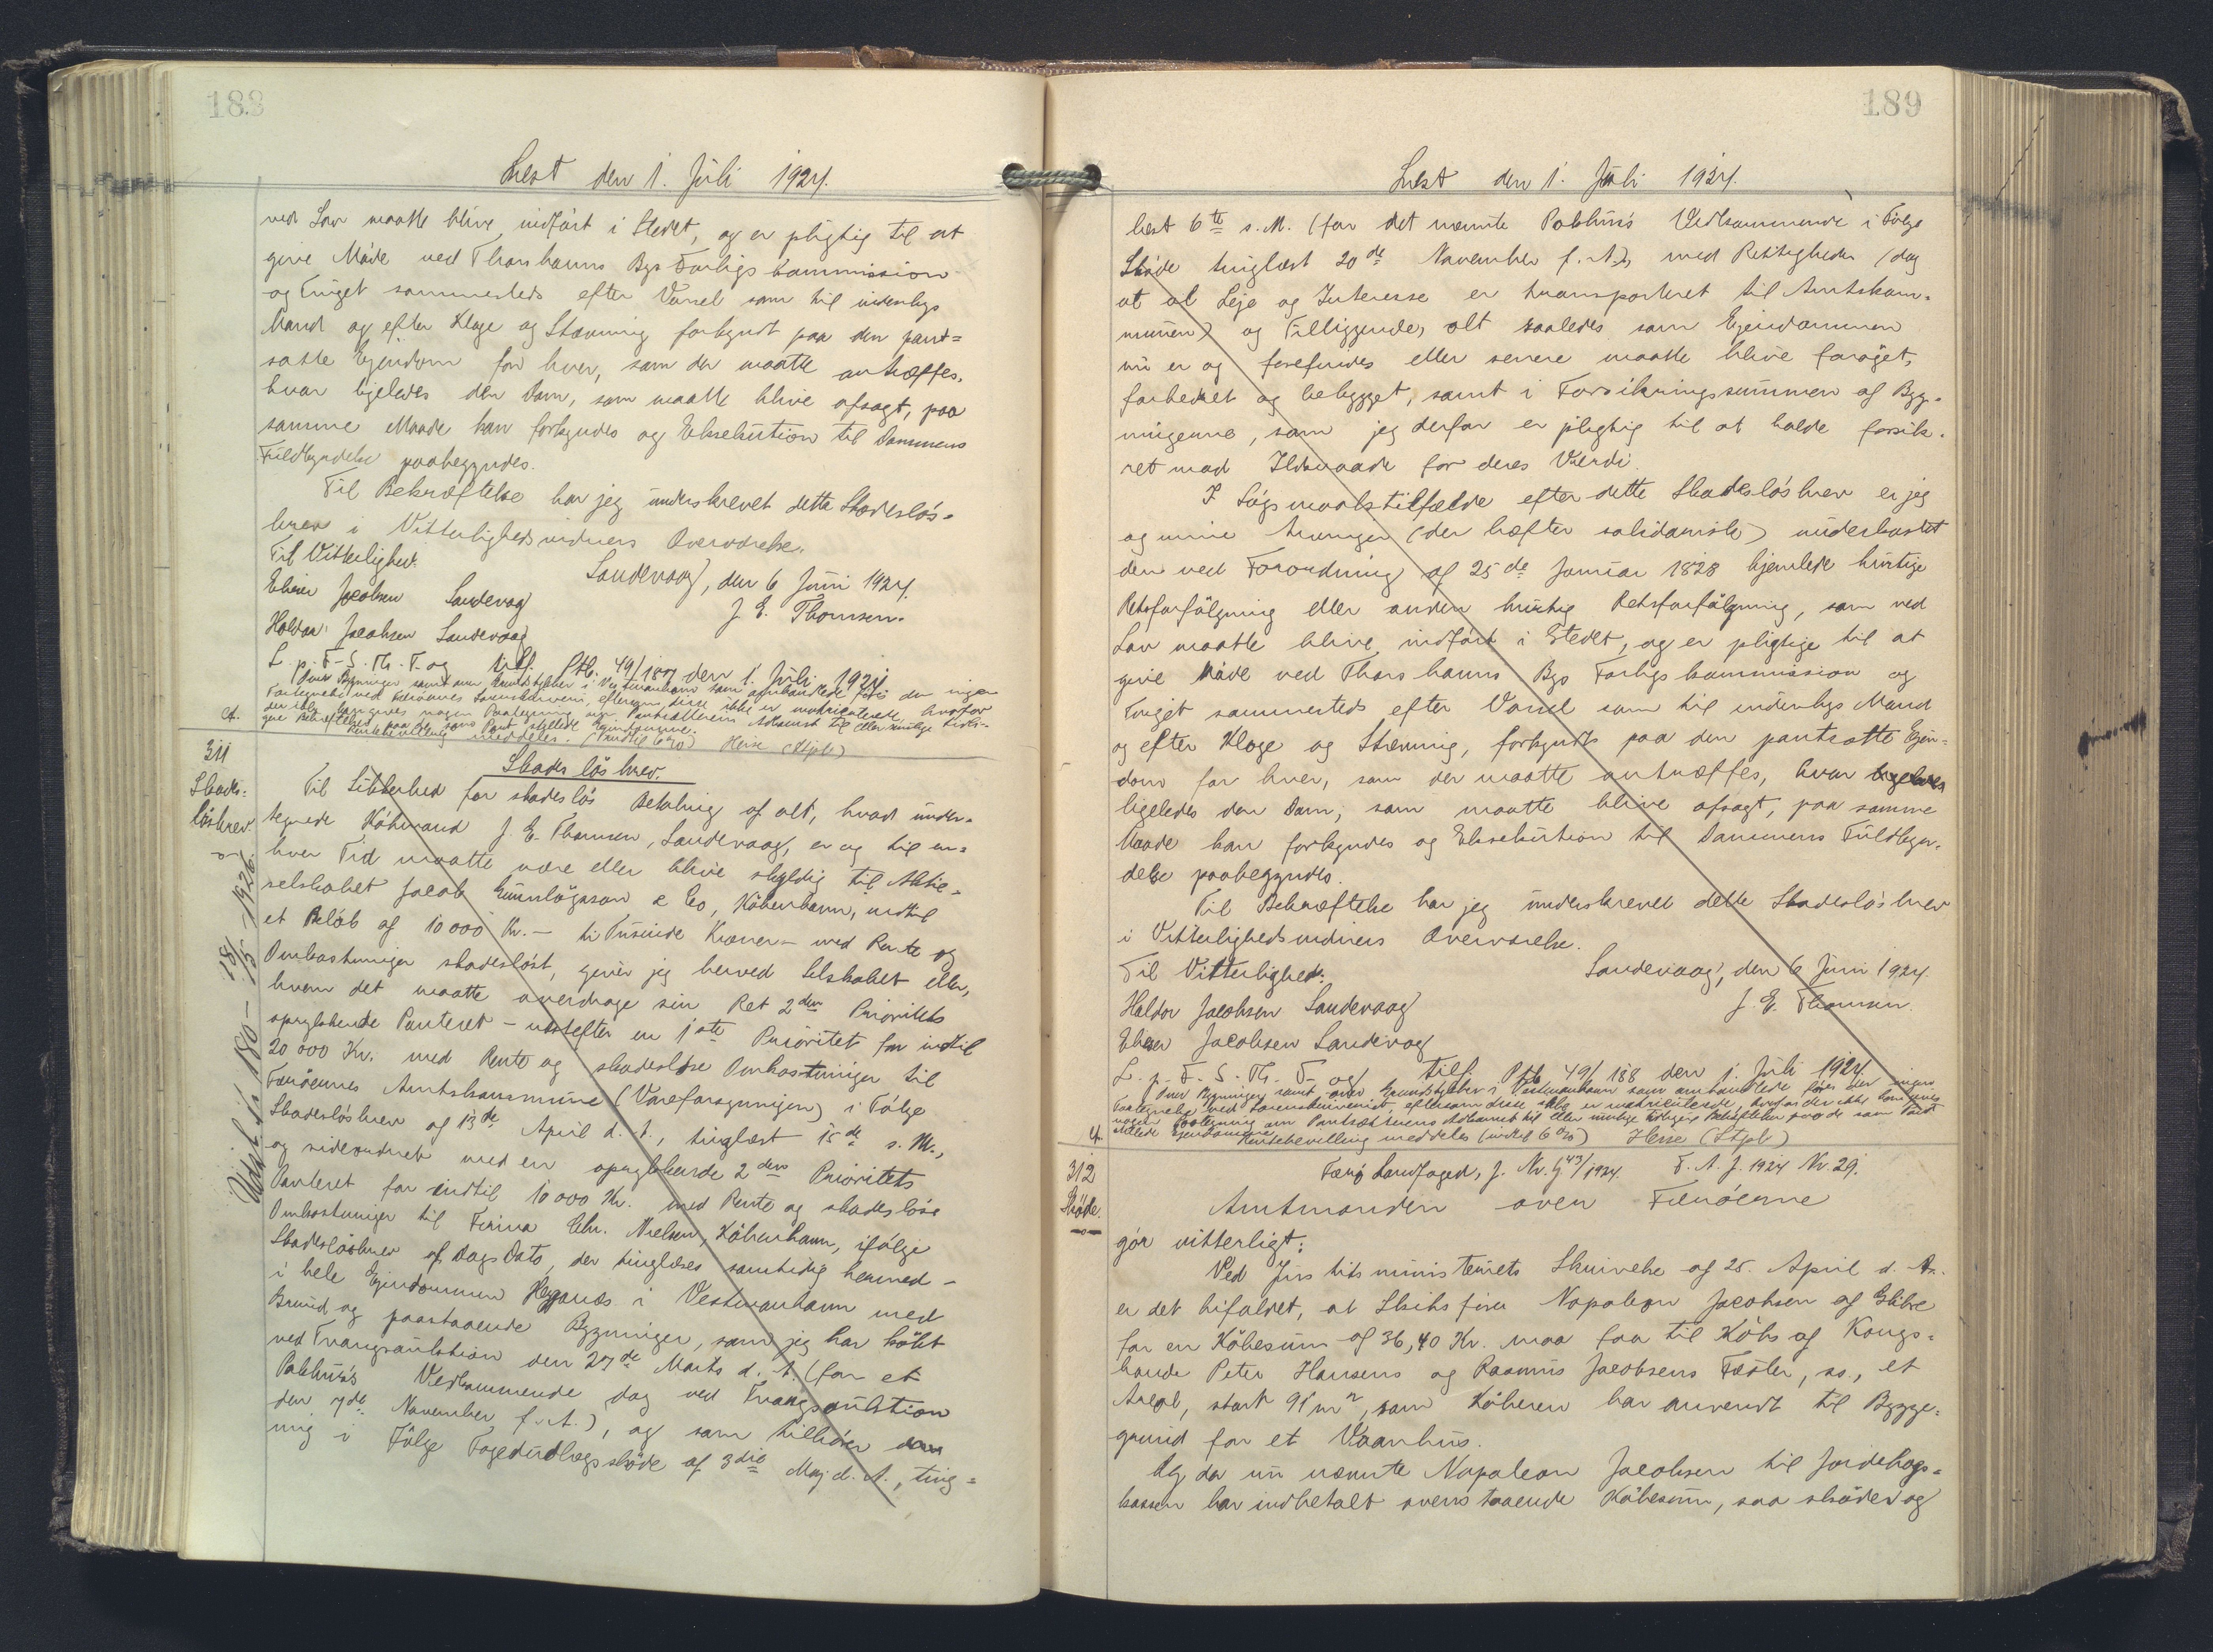 188
Læst den 1. Juli 1924.
ved Lov maatte blive indført i Stedet, og er pligtig til at
give Møde ved Thorshavns Bys Forligskommission
og Tinget sammesteds efter Varsel som til indenbys
Mand og efter Klage og Stævning forkyndt paa den pant=
satte Ejendom for hver, som der maatte antræffes,
hvor ligeledes den Dom, som maatte blive afsagt, paa
samme Maade kan forkyndes og Eksekution til Dommens
Fuldbyrdelse paabegyndes.
Til Bekræftelse har jeg underskrevet dette Skadesløs=
brev i Vitterlighedsvidners Overværelse.
Sandevaag, den 6 Juni 1924.
J. E. Thomsen.
Til Vitterlighed.
Elieser Jacobsen Sandevag
Haldor Jacobsen Sandevaag
L. p. F-S. Th. T. og tilf. Ptb. 49/187 den 1. Juli 1924
over Bygninger samt over Grundstykker i Vestmanhavn som omhandlede føres der ingen
Fortegnelse ved Færøernes Sorenskriveri, eftersom disse ikke er matrikulerede, hvorfor
der ikke kan gives nogen Paategning om Pantsætterens Adkomst til eller mulige tidli=
gere Behæftelser paa de som Pant stillede Ejendomme.
Rentebevilling meddeles. (indtil 6 %) Heise (Stpl.)
311
Skades=
løsbrev.
Udslettet 180 - 18/5 - 1926.
Skadesløsbrev.
Til Sikkerhed for skadesløs Betaling af alt, hvad under=
tegnede Købmand J. E. Thomsen, Sandevaag, er og til en=
hver Tid maatte være eller blive skyldig til Aktie=
selskabet Jacob Gunnlögsson & Co, København, indtil
et Beløb af 10000 Kr. - ti Tusinde Kroner - med Rente og
Omkostninger skadesløst, giver jeg herved Selskabet eller,
hvem det maatte overdrage sin Ret 2den Prioritets
oprykkende Panteret - næstefter en 1ste Prioritet for indtil
20000 Kr. med Rente og skadesløse Omkostninger til
Færöernes Amtskommune (Vareforsyningen) i Følge
Skadesløsbrev af 13de April d. A., tinglæst 15de s. M.,
og sideordnet med en oprykkende 2den Prioritets
Panteret for indtil 10000 Kr. med Rente og skadesløse
Omkostninger til Firma Chr. Nielsen, København, ifølge
Skadesløsbrev af Dags Dato, der tinglæses samtidig hermed -
i hele Ejendommen Heyganæs i Vestmanhavn med
Grund og paastaaende Bygninger, som jeg har købt
ved Tvangsauktion den 27de Marts d. A. (for et
Pakhus's Vedkommende dog ved Tvangsauktion
den 7de November f. A.), og som tilhører
mig i Følge Fogedudlægsskøde af 3die Maj d. A., ting=
189
Læst den 1. Juli 1924.
læst 6te s. M. (for det nævnte Pakhus's Vedkommende i Følge
Skøde tinglæst 20de November f. A.), med Rettigheder (dog
at al Leje og Interesse er transporteret til Amtskom=
munen) og Tilliggende, alt saaledes som Ejendommen
nu er og forefindes eller senere maatte blive forøget,
forbedret og bebygget, samt i Forsikringssummen af Byg=
ningerne, som jeg derfor er pligtig til at holde forsik=
ret mod Ildsvaade for deres Værdi.
I Søgsmaalstilfælde efter dette Skadesløsbrev er jeg
og mine Arvinger (der hæfter solidarisk) underkastet
den ved Forordning af 25de Januar 1828 hjemlede hurtige
Retsforfølgning eller anden hurtig Retsforfølgning, som ved
Lov maatte blive indført i Stedet, og er pligtige til at
give Møde ved Thorshavns Bys Forligskommission og
Tinget sammesteds efter Varsel som til indenbys Mand
og efter Klage og Stævning, forkyndt paa den pantsatte Ejen=
dom for hver, som der maatte antræffes, hvor
ligeledes den Dom, som maatte blive afsagt, paa samme
Maade kan forkyndes og Eksekution til Dommens Fuldbyr=
delse paabegyndes.
Til Bekræftelse har jeg underskrevet dette Skadesløsbrev
i Vitterlighedsvidners Overværelse.
Sandevaag, den 6 Juni 1924.
J. E. Thomsen.
Til Vitterlighed:
Haldor Jacobsen Sandevaag
Elieser Jacobsen Sandevag
L. p. F. S. Th. T. og tilf. Ptb 49/188 den 1. Juli 1924.
over Bygninger samt over Grundstykker i Vestmanhavn som omhandlede føres der ingen
Fortegnelse ved Sorenskriveriet, eftersom disse ikke er matrikulerede, hvorfor der ikke kan gives
nogen Paategning om Pantsætterens Adkomst til eller mulige tidligere Behæftelser paa de som Pant
stillede Ejendomme.
Rentebevilling meddeles (indtil 6 %) Heise (Stpl.)
312
Skøde.
Færø Landfoged, J. Nr. G 43/1924. F. A. J. 1924 Nr. 29.
Amtmanden over Færøerne
gør vitterligt:
Ved Justitsministeriets Skrivelse af 25. April d. A.
er det bifaldet, at Skibsfører Napoleon Jacobsen af Glibre
for en Købesum af 36,40 Kr. maa faa til Købs af Kongs=
bonde Peter Hansens og Rasmus Jacobsens Fæster, ss., et
Areal, stort 91 m², som Køberen har anvendt til Bygge=
grund for et Vaanhus.
Og da nu nævnte Napoleon Jacobsen til Jordebogs=
kassen har indbetalt ovenstaaende Købesum, saa skøder og